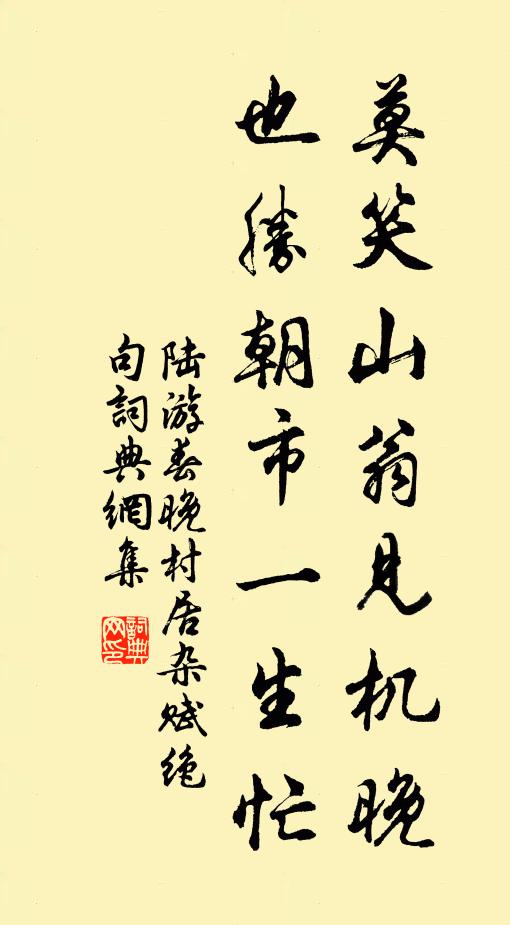 莫笑山翁见机晚
也勝朝市一生忙
陆游春晚村居杂赋绝
句詞典網集
詞典
网印